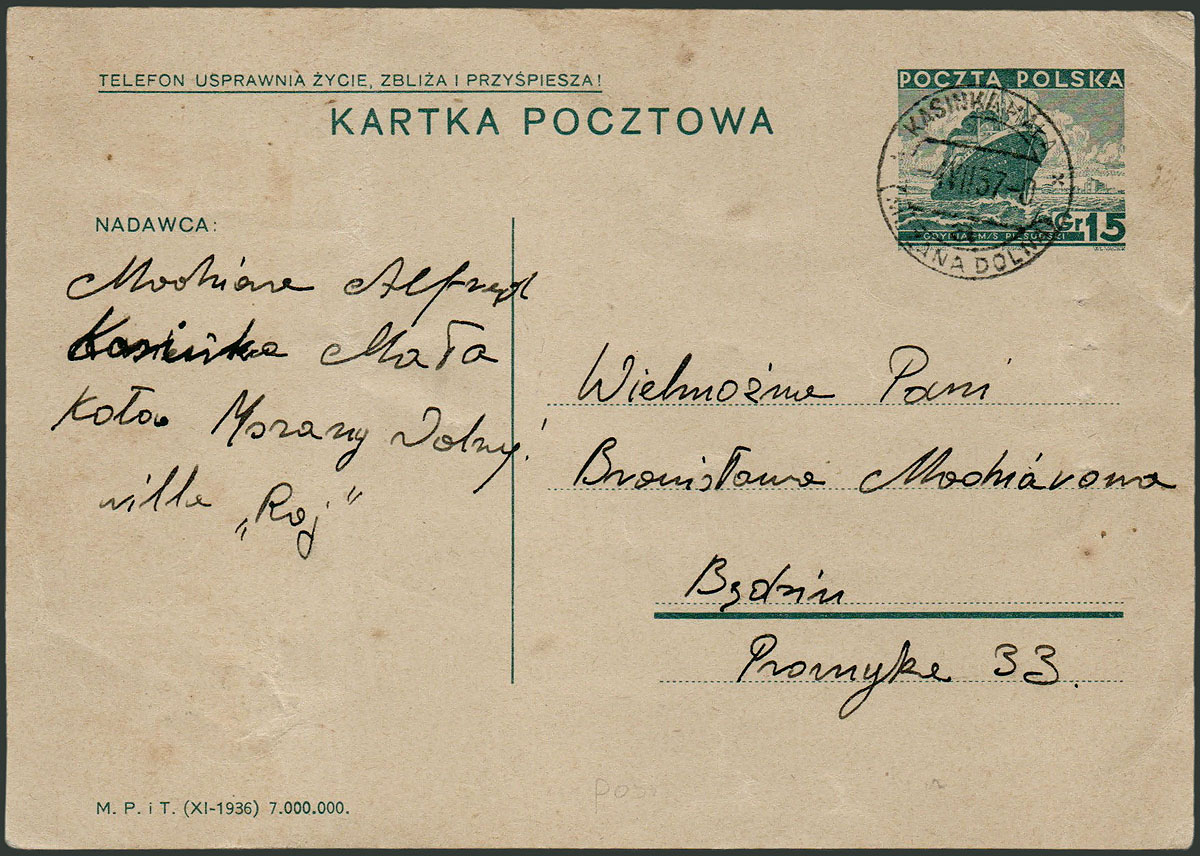 TELEFON USPRAWNIA ŻYCIE, ZBLIŻA I PRZYŚPIESZA!
KARTKA POCZTOWA
POCZTA POLSKA
KASINKA MAŁA
VII 37
MSZANA DOLNA
Gr 15
GDYNIA M/S PIŁSUDSKI
NADAWCA:
Alfred
Kasinka Mała
Koło Mszany Dolnej
willa „Raj”
Wielmożna Pani
Bronisława
Będzin
Promyka 33.
M. P. i T. (XI-1936) 7.000.000.